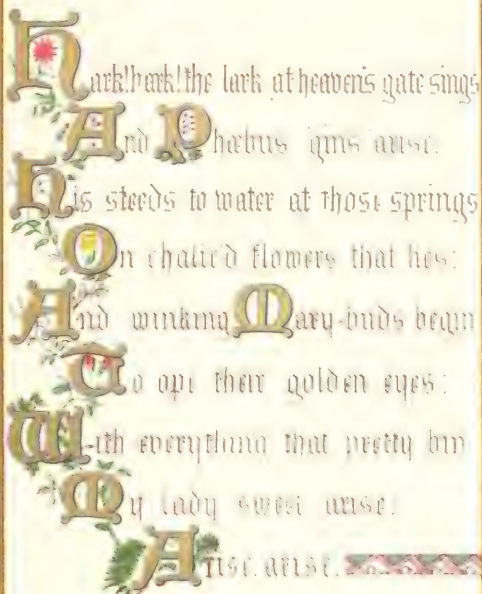 Hark! hark! the lark at heaven's gate sings
And Phœbus 'gins arise.
His steeds to water at those springs
On chalic'd flowers that lies:
And winking Mary-buds begin
To ope their golden eyes:
With everything that pretty bin
My lady sweet arise:
Arise, arise.